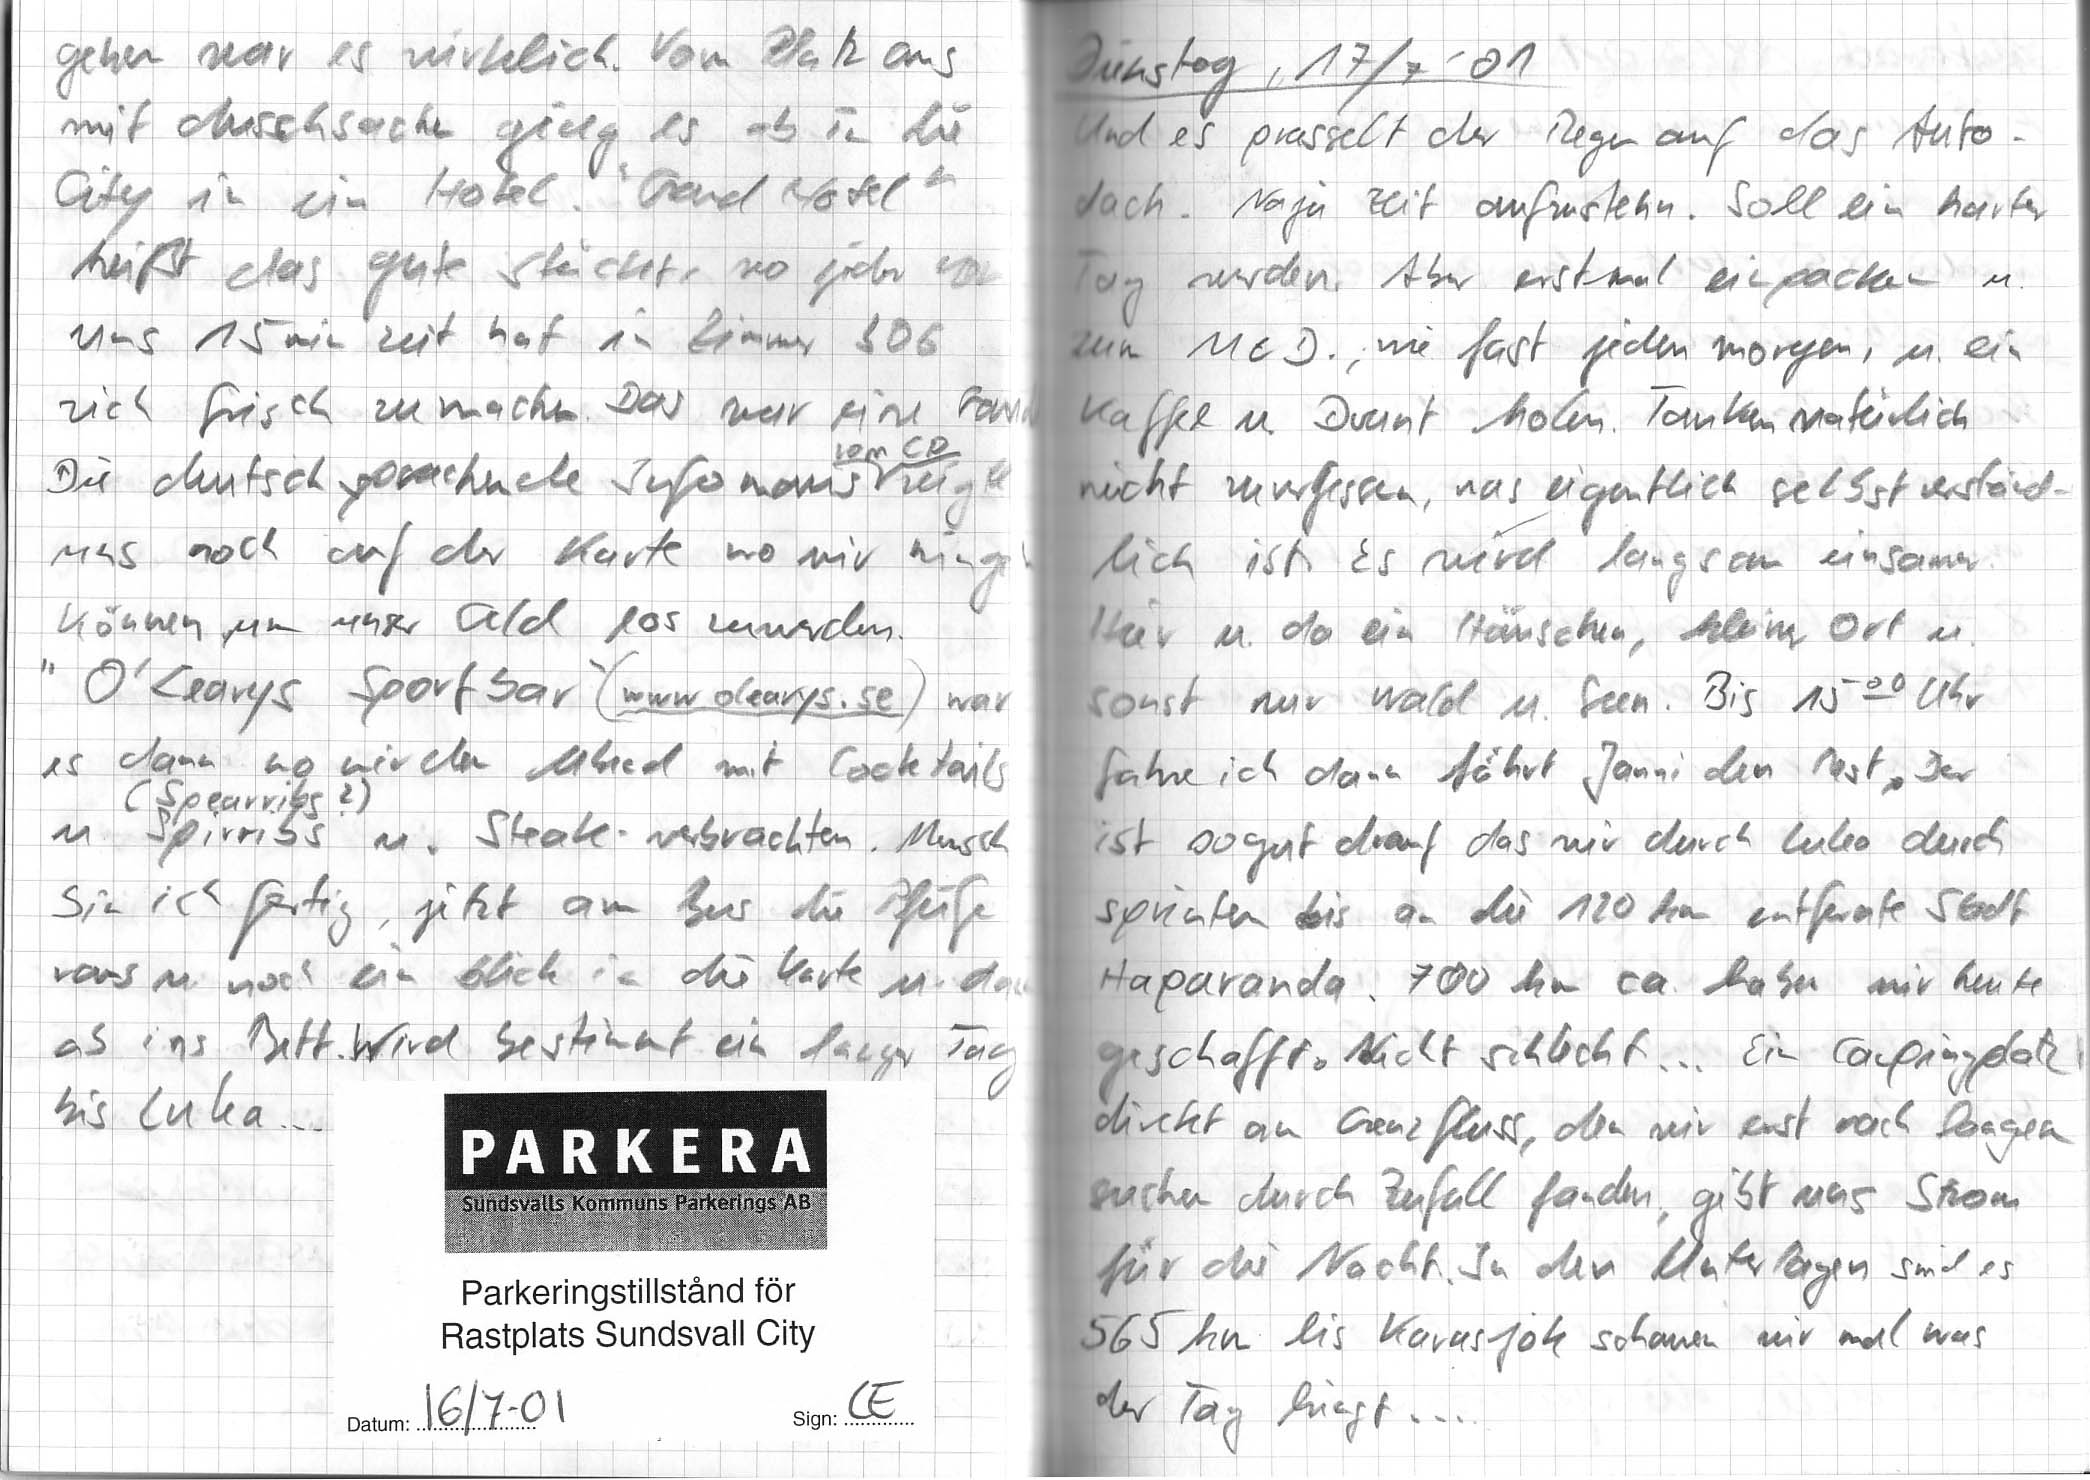 gehen war es wirklich. Vom Platz aus
mit duschsachen ging es ab in die
City in ein Hotel. "Grand Hotel"
heißt das gute stück, wo jeder von
uns 15 min zeit hat in Zimmer 306
sich frisch zumachen. Das war eine
vom CP
Die deutsch sprachende Infomaus zeigte
uns noch auf der Karte wo wir hingehn
können um unser Geld los zuwerden.
"O'Learys Sportbar" (www.olearys.se) war
es dann wo wir den Abend mit Cocktails
(Spearribs?)
u. Spirribs u. Steak verbrachten. Mensch
bin ich fertig, jetzt am Bus die Pfeife
raus u. noch ein blick in die Karte u. dann
ab ins Bett. Wird bestimmt ein langer Tag
bis Lulea...
PARKERA
Sundsvalls Kommuns Parkerings AB
Parkeringstillstånd för
Rastplats Sundsvall City
Datum: 16/7-01
Sign: CE
Dienstag, 17/7-01
Und es prasselt der Regen auf das Auto-
dach. Naja zeit aufzustehn. Soll ein harter
Tag werden. Aber erstmal einpacken u.
zum McD., wie fast jeden morgen, u. ein
Kaffee u. Dount holen. Tanken natürlich
nicht zuvergessen, was eigentlich selbstverständ-
lich ist. Es wird langsam einsamer.
Hier u. da ein Häuschen, kleiner Ort u.
sonst nur Wald u. Seen. Bis 15⁰⁰ Uhr
fahre ich dann fährt Janni den Rest. Der
ist sogut drauf das wir durch Lulea durch
sprinten bis an die 120 km entfernte Stadt
Haparanda. 700 km ca. haben wir heute
geschafft. Nicht schlecht... Ein Campingplatz
direkt am Grenzfluss, den wir erst nach langen
suchen durch Zufall fanden, gibt uns Strom
für die Nacht. In den Unterlagen sind es
565 km bis Karasjok schauen wir mal was
der Tag bringt....